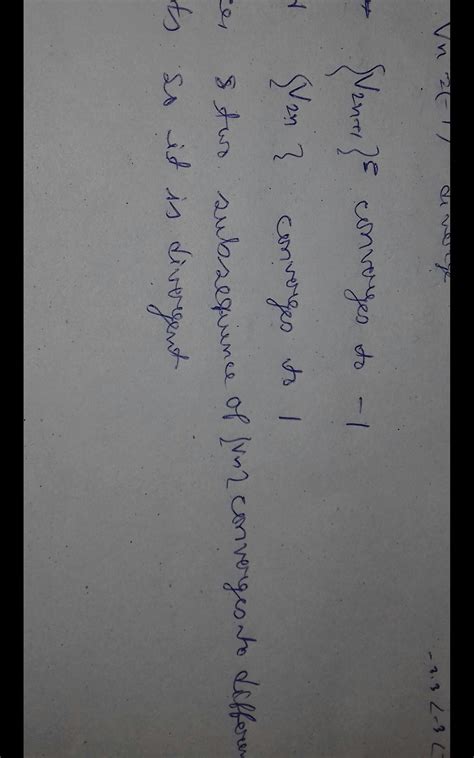 Vn = (-1) diverge
{V2n+1} converges to -1
{V2n} converges to 1
ce, two subsequence of {Vn} converges to differen
ts So it is divergent
-3.3 < -3 <